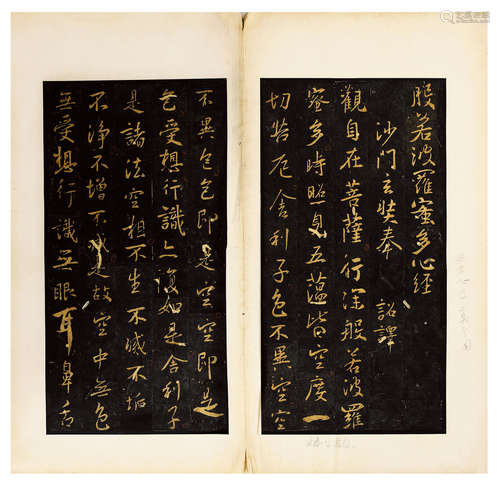 般若波羅蜜多心經
沙門玄奘奉 詔譯
觀自在菩薩行深般若波羅
蜜多時照見五蘊皆空度一
切苦厄舍利子色不異空空
不異色色即是空空即是
色受想行識亦復如是舍利子
是諸法空相不生不滅不垢
不淨不增不減是故空中無色
無受想行識無眼耳鼻舌